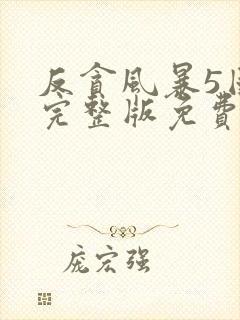 反貪風暴5
完整版免費
庞宏强